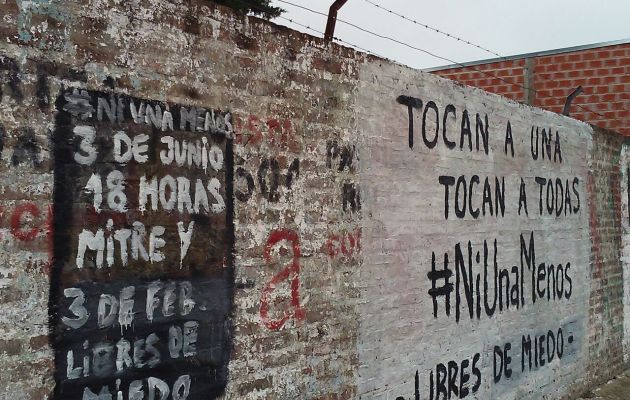 #NI UNA MENOS
3 DE JUNIO
18 HORAS
MITRE Y
3 DE FEB.
LIBRES DE
MIEDO
a
TOCAN A UNA
TOCAN A TODAS
#NiUnaMenos
LIBRES DE MIEDO -